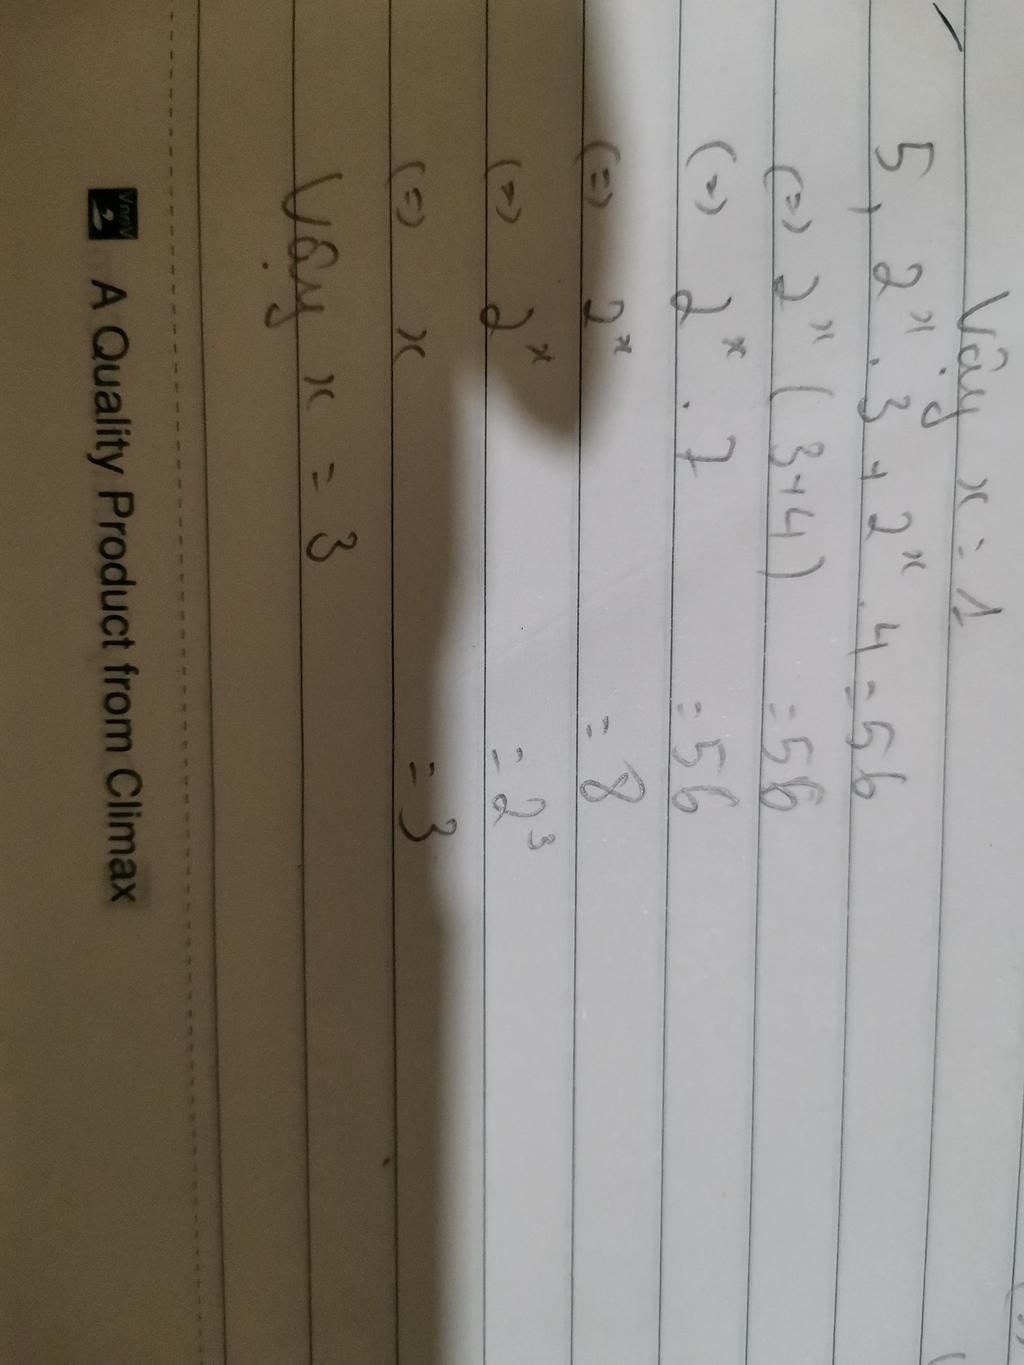 Vậy x = 1
5, 2ˣ . 3 + 2ˣ . 4 = 56
(=) 2ˣ ( 3+4) = 56
(=) 2ˣ . 7 = 56
(=) 2ˣ = 8
(=) 2ˣ = 2³
(=) x = 3
Vậy x = 3
A Quality Product from Climax